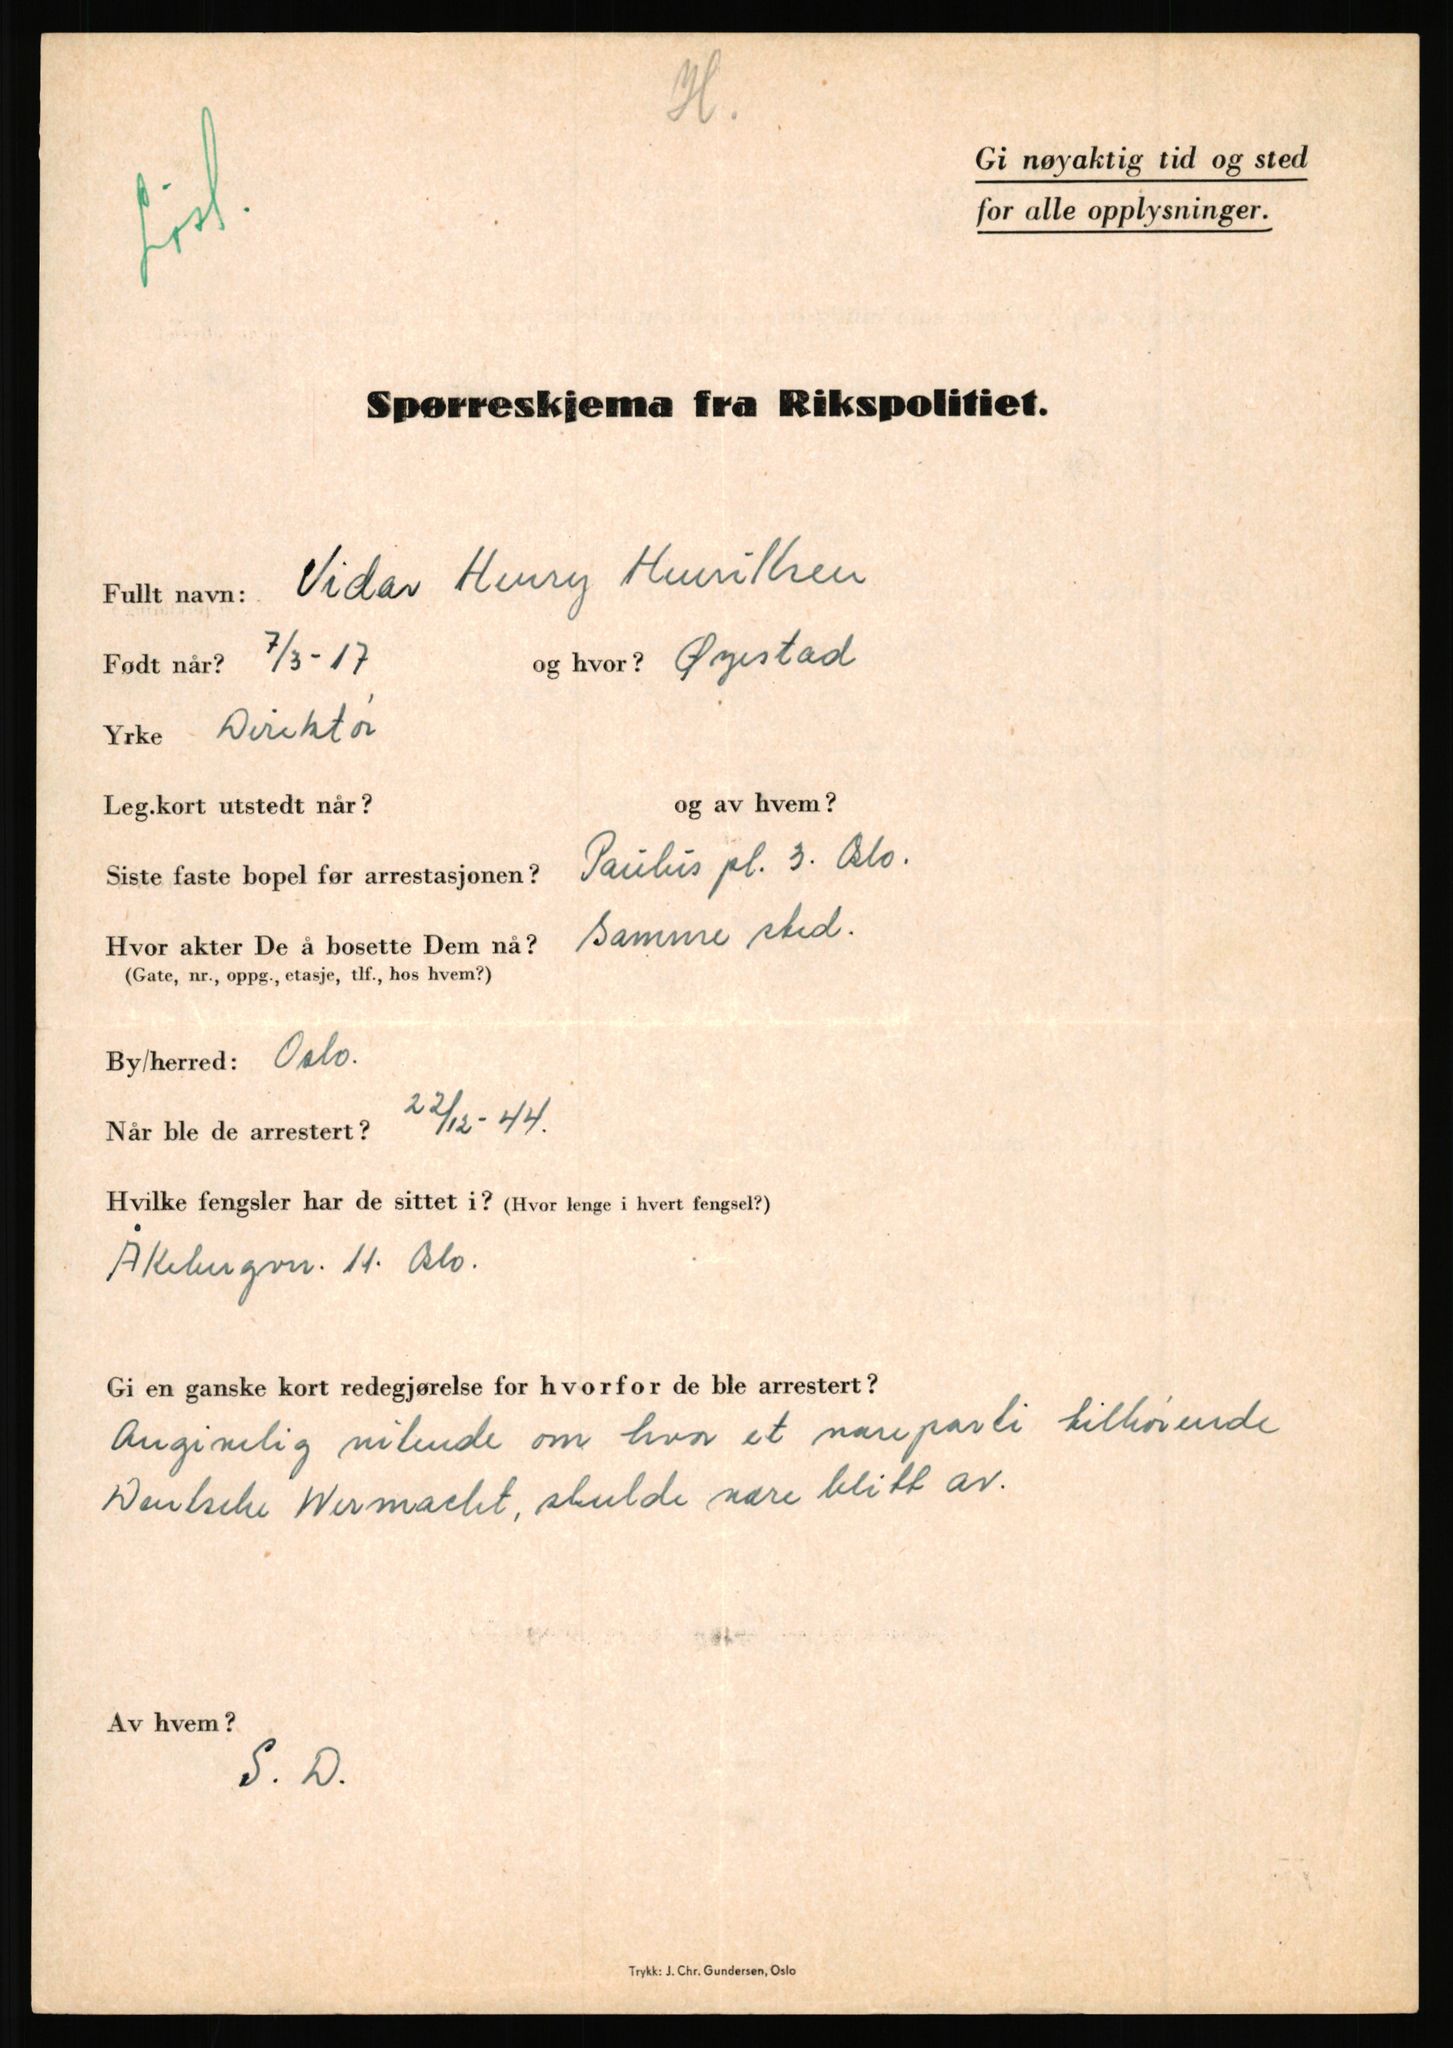 H.
Løsl.
Gi nøyaktig tid og sted
for alle opplysninger.
Spørreskjema fra Rikspolitiet.
Fullt navn: Vidar Henry Henriksen
Født når? 7/3-17 og hvor? Øyestad
Yrke Direktør
Leg.kort utstedt når? og av hvem?
Siste faste bopel før arrestasjonen? Paulus pl. 3. Oslo.
Hvor akter De å bosette Dem nå? Samme sted.
(Gate, nr., oppg., etasje, tlf., hos hvem?)
By/herred: Oslo.
Når ble de arrestert? 22/12-44.
Hvilke fengsler har de sittet i? (Hvor lenge i hvert fengsel?)
Åkebergvn. 11. Oslo.
Gi en ganske kort redegjørelse for hvorfor de ble arrestert?
Angivelig vitende om hvor et vareparti tilhørende
Deutsche Wermacht, skulde være blitt av.
Av hvem?
S. D.
Trykk: J. Chr. Gundersen, Oslo